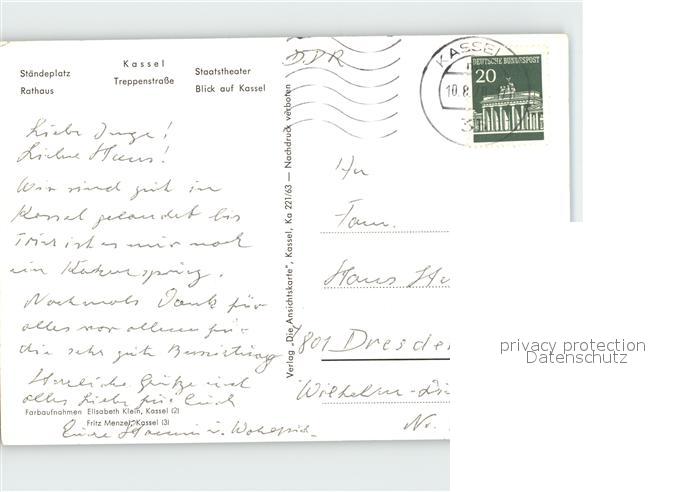 Kassel
Ständeplatz Treppenstraße Staatstheater
Rathaus Blick auf Kassel
DDR
KASSEL
10.8.
DEUTSCHE BUNDESPOST
20
Liebe Inge!
Lieber Hans!
Wir sind gut in
Kassel gelandet bis
Trier ist es nur noch
ein Katzensprung.
Nochmals Dank für
alles vor allem für
die sehr gute Bewirtung
Herzliche Grüße und
alles Liebe für Euch
Eure
Verlag „Die Ansichtskarte", Kassel, Ka 221/63 — Nachdruck verboten
Fam.
Hans
7801 Dresden
Wilhelm-
Nr.
Farbaufnahmen Elisabeth Klein, Kassel (2)
Fritz Menzel, Kassel (3)
privacy protection
Datenschutz